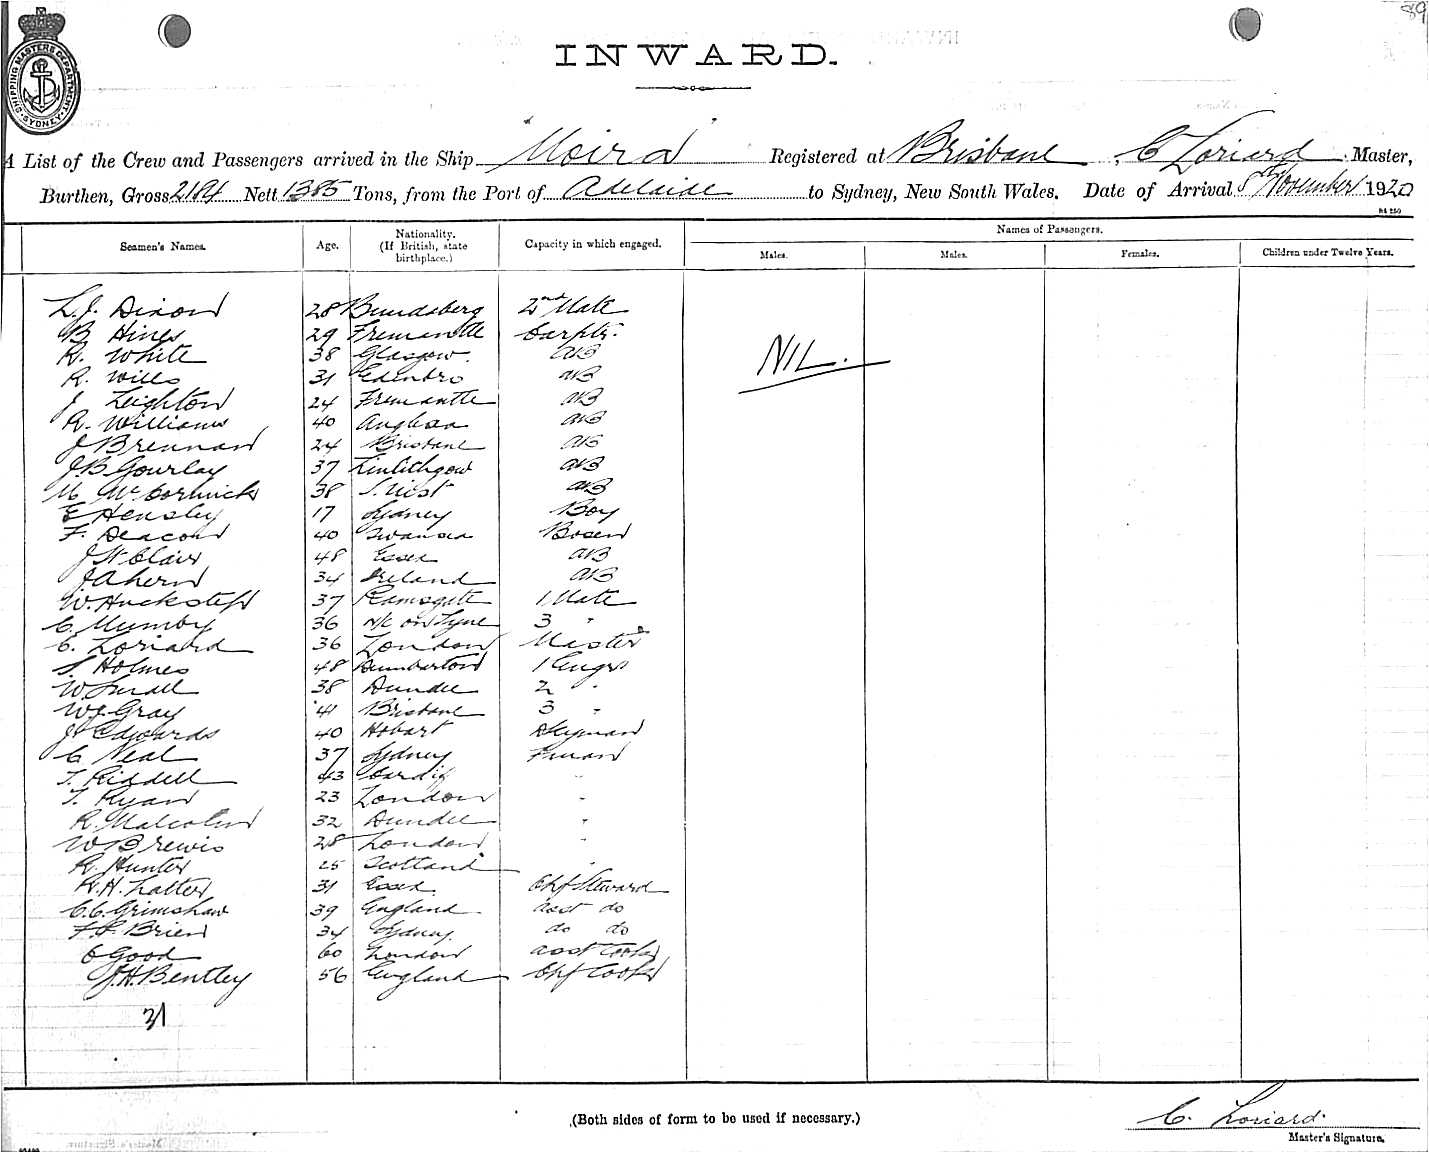 89
SHIPPING MASTERS DEPARTMENT SYDNEY
INWARD.
A List of the Crew and Passengers arrived in the Ship Moira Registered at Brisbane, C Loriard Master,
Burthen, Gross 2184 Nett 1385 Tons, from the Port of Adelaide to Sydney, New South Wales. Date of Arrival 8th November 1920
Seamen's Names. Age. Nationality. (If British, state birthplace.) Capacity in which engaged. Names of Passengers.
Males. Males. Females. Children under Twelve Years.
L. J. Dixon 28 Bundaberg 2nd Mate
B Hines 29 Fremantle Carptr.
R. White 38 Glasgow. AB
NIL.
R. Wills 31 Edinbro AB
J Leighton 24 Fremantle AB
R. Williams 40 Anglesea AB
J Brennan 24 Brisbane AB
J. B Gourlay 37 Linlithgow AB
M McCormick 38 AB
E Hensley 17 Sydney Boy
F. Deacon 40 Swansea Bosen
J St Clair 48 Essex AB
J Ahern 34 Ireland AB
W. Huckstep 37 Ramsgate 1 Mate
C. Mumby 36 N/C on Tyne 3 "
C. Loriard 36 London Master
S. Holmes 48 Dumbarton 1 Engr
W. Small 38 Dundee 2 "
W. J. Gray 41 Brisbane 3 "
J. Edwards 40 Hobart Dkyman
C Neal 37 Sydney Fman
T. Riddell 43 Cardiff "
T. Ryan 23 London "
R. Malcolm 32 Dundee "
W Brewis 28 London "
R. Hunter 25 Scotland "
R. H. Latter 31 Essex Chf Steward
C. C. Grimshaw 39 England Asst do
F. J. Brien 34 Sydney. do do
C Good 60 London Asst Cook
J. H. Bentley 56 England Chf Cook
31
(Both sides of form to be used if necessary.)
C. Loriard.
Master's Signature.